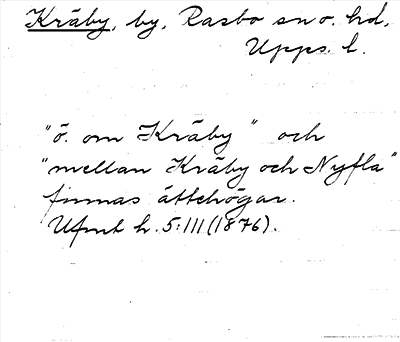 Kräby, by, Rasbo sn o. hd,
Upps. l.
"ö. om Kräby" och
"mellan Kräby och Nyfla"
finnas ättehögar.
Ufmt h. 5:III (1876).